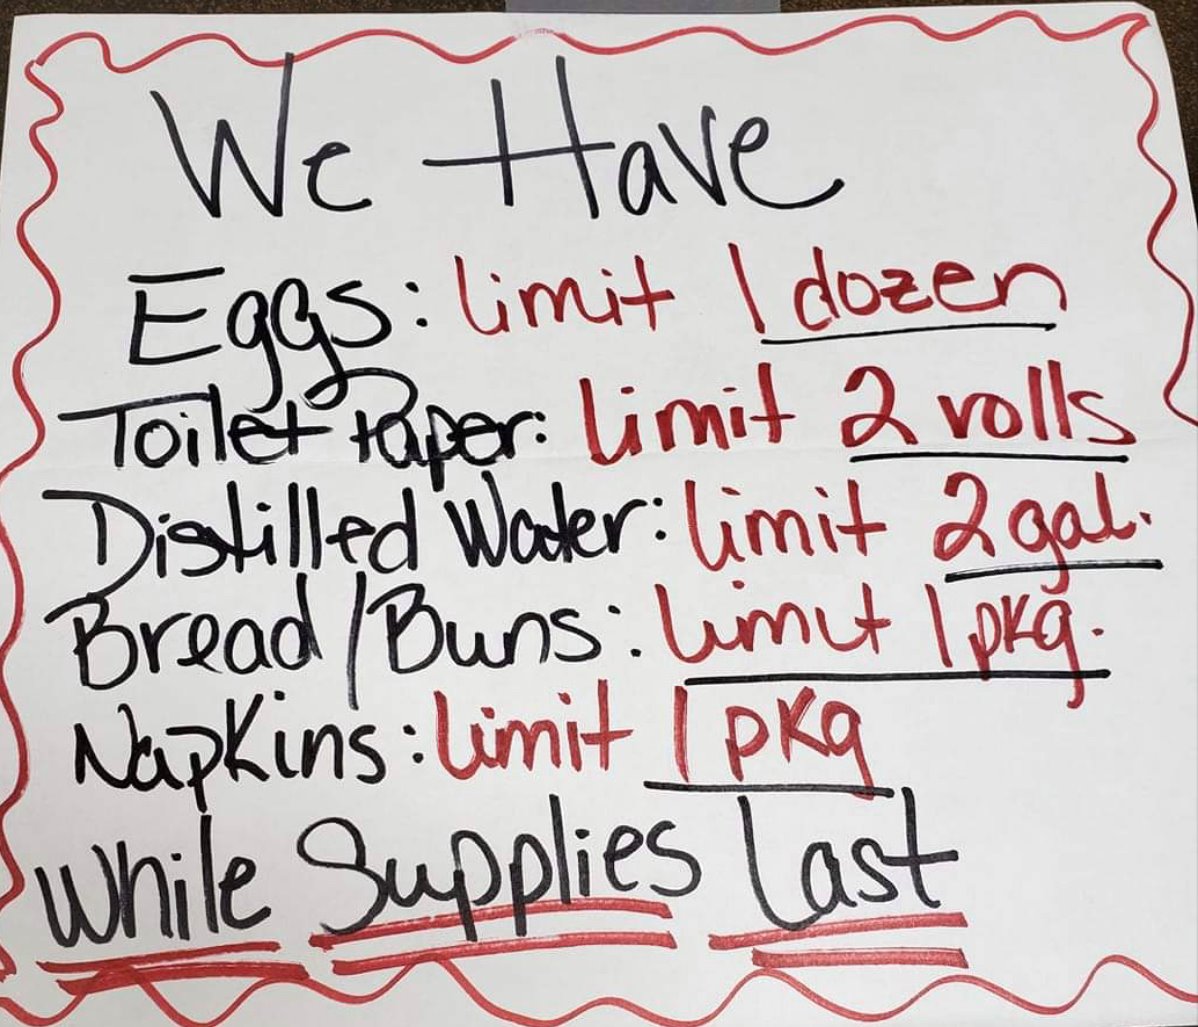 We Have
Eggs: limit 1 dozen
Toilet Paper: limit 2 rolls
Distilled Water: limit 2 gal.
Bread/Buns: limit 1 pkg.
Napkins: limit 1 pkg
While Supplies Last